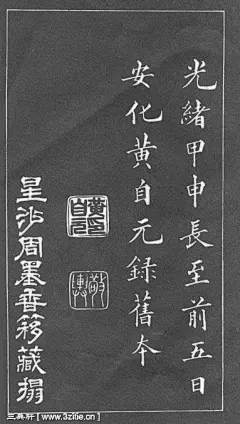 光緒甲申長至前五日
安化黃自元錄舊本
黃印自元
敬輿
星沙周墨香簃藏搨
三典軒【www.3zitie.cn】